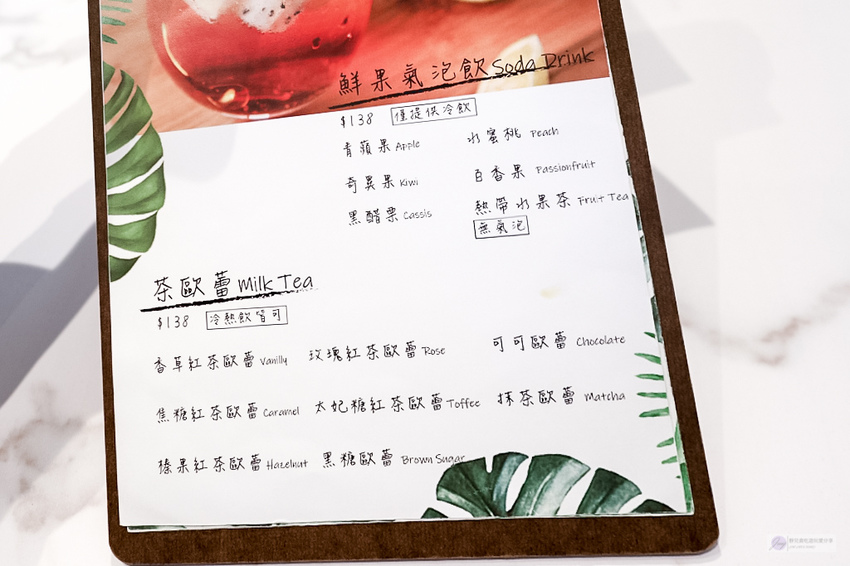 鮮果氣泡飲 Soda Drink
$138 僅提供冷飲
青蘋果 Apple 水蜜桃 Peach
奇異果 Kiwi 百香果 Passionfruit
黑醋栗 Cassis 熱帶水果茶 Fruit Tea
無氣泡
茶歐蕾 Milk Tea
$138 冷熱飲皆可
香草紅茶歐蕾 Vanilly 玫瑰紅茶歐蕾 Rose 可可歐蕾 Chocolate
焦糖紅茶歐蕾 Caramel 太妃糖紅茶歐蕾 Toffee 抹茶歐蕾 Matcha
榛果紅茶歐蕾 Hazelnut 黑糖歐蕾 Brown Sugar